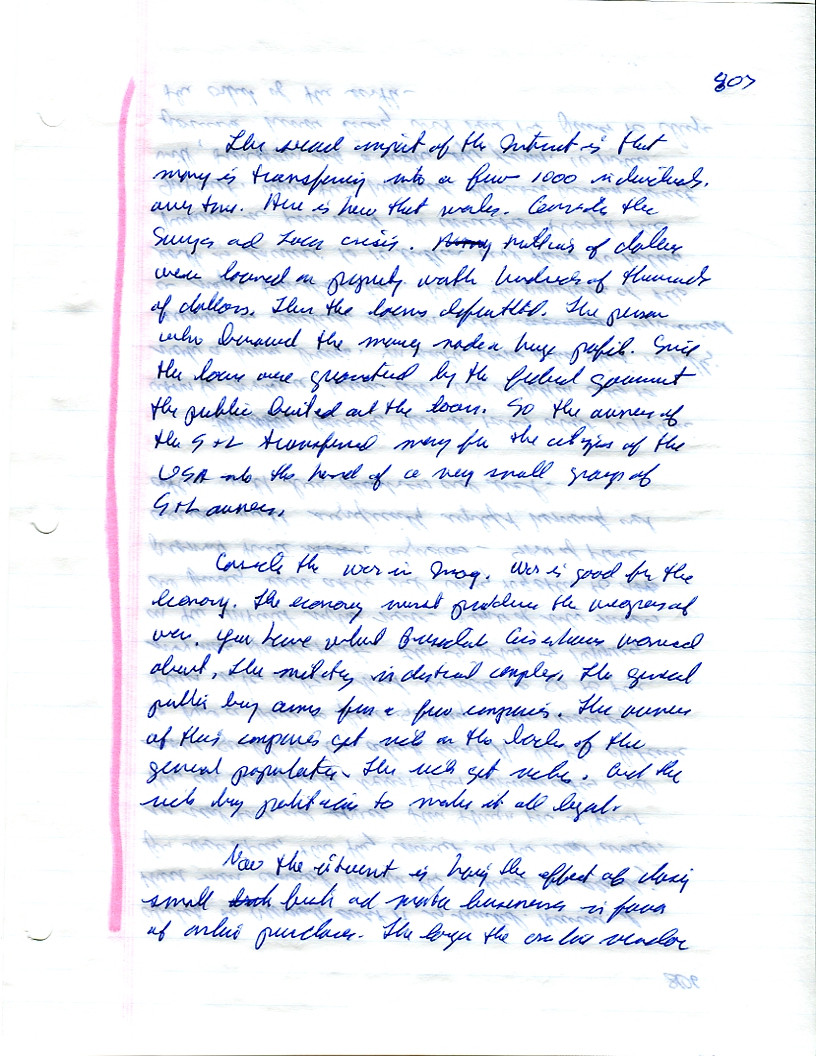 807
The second impact of the Internet is that
money is transfering into a few 1000 individuals.
over time. Here is how that works. Consider the
Savings ad Loan crisis. millions of dollars
were loaned on property worth hundreds of thousands
of dollars. Then the loans defaulted. The person
who borrowed the money made a huge profit. Since
the loans were guaranteed by the federal government
the public bailed out the loans. So the owners of
the S+L transferred money from the citizens of the
USA into the hand of a very small group of
S+L owners.
Consider the war in Iraq. War is good for the
economy. The economy must produce the weapons of
war. You have what President Eisenhower worried
about, the military industrial complex. The general
public buy arms from a few companies. The owners
of this companies get rich on the backs of the
general population. The rich get richer. And the
rich buy politicians to make it all legal.
Now the internet is having the effect of closing
small book ad music businesses in favor
of online purchases. The larger the online vendor